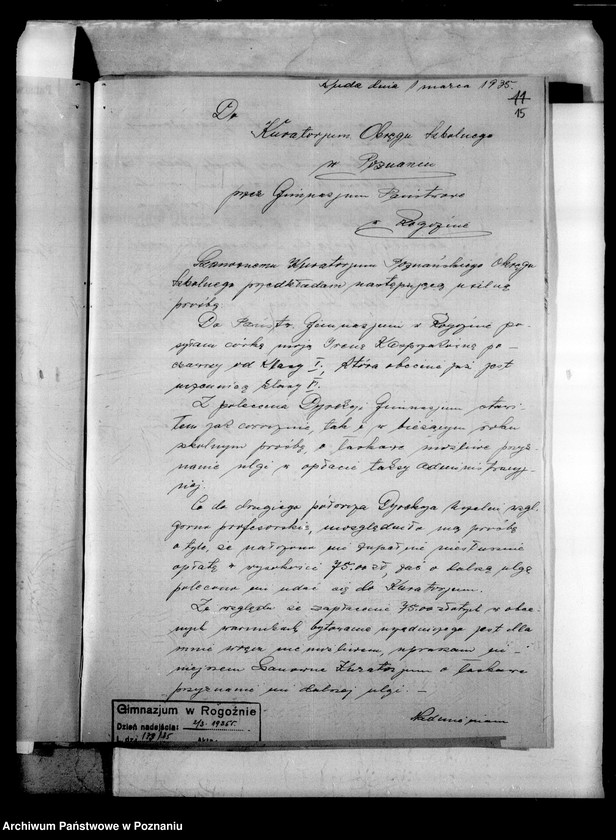 dnia 1 marca 1935.
11
15
Do
Kuratorjum Okręgu Szkolnego
w Poznaniu
przez Gimnazjum Państwowe
w Rogoźnie
Szanownemu Kuratorjum Poznańskiego Okręgu
Szkolnego przedkładam następującą usilną
prośbę.
Do Państw. Gimnazjum w Rogoźnie po-
syłam córkę moją Irenę po-
cząwszy od klasy I, która obecnie już jest
uczennicą klasy VI.
Z polecenia Dyrekcji Gimnazjum stawi-
łem jak corocznie, tak i w bieżącym roku
szkolnym prośbę o łaskawe możliwe przyz-
nanie ulgi w opłacie taksy administracyj-
nej.
Co do drugiego półrocza Dyrekcja wzgl.
grono profesorskie, uwzględniła mą prośbę
o tyle, że nałożono mi zupełnie niesłusznie
opłatę w wysokości 75.00 zł, zaś o dalszą ulgę
polecono mi udać się do Kuratorjum.
Ze względu że zapłacenie 75.00 złotych w obec-
nych warunkach bytowania jest dla
mnie wręcz nie możliwem, upraszam ni-
niejszem Szanowne Kuratorjum o łaskawe
przyznanie mi dalszej ulgi. —
Nadmieniam
Gimnazjum w Rogoźnie
Dzień nadejścia: 2/3. 1935 r.
L. dz. 179/35 Akta:
Archiwum Państwowe w Poznaniu